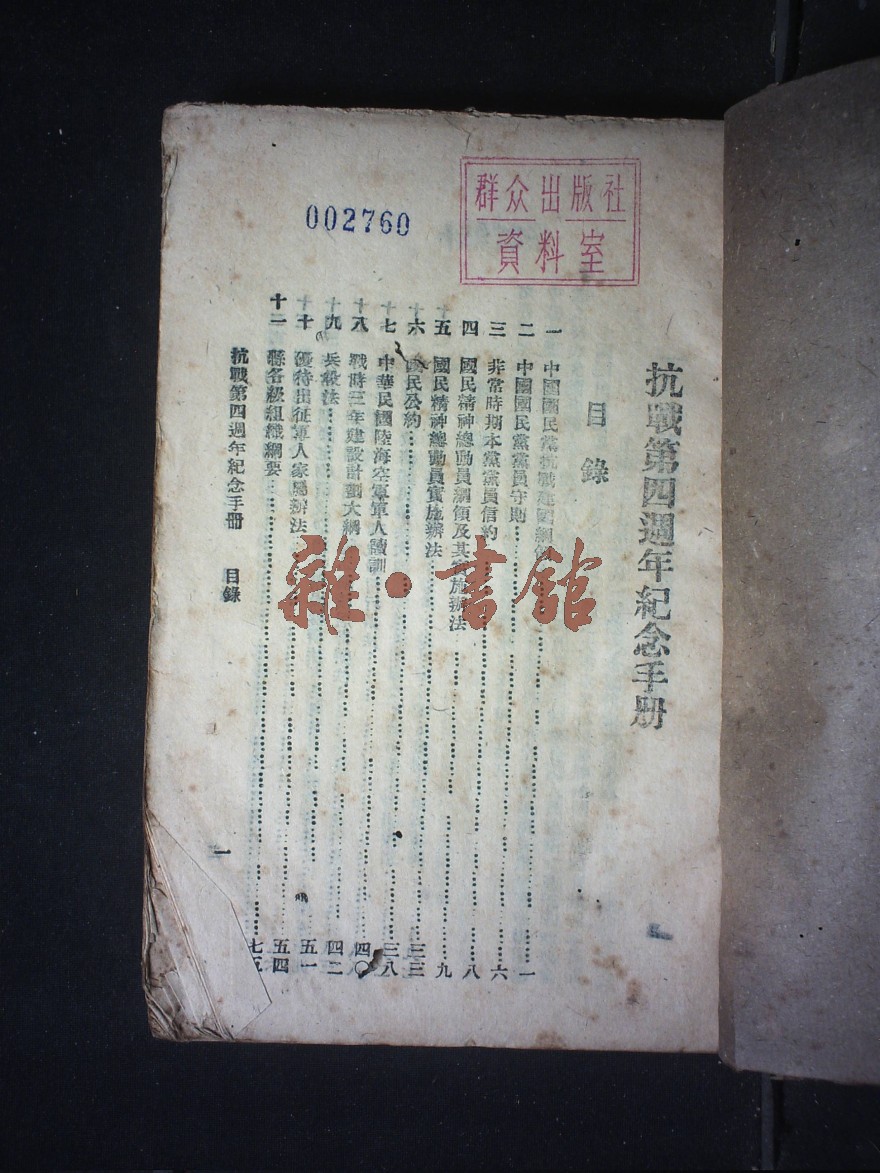 群众出版社
資料室
002760
抗戰第四週年紀念手册
目錄
一 中國國民黨抗戰建國綱領 一
二 中國國民黨黨員守則 六
三 非常時期本黨黨員信約 八
四 國民精神總動員綱領及其實施辦法 九
五 國民精神總動員實施辦法 三三
六 國民公約 三八
七 中華民國陸海空軍軍人讀訓 四〇
八 戰時三年建設計劃大綱 四二
九 兵役法 五一
十 優待出征軍人家屬辦法 五四
十一 縣各級組織綱要 七五
抗戰第四週年紀念手册 目錄
一
雜·書館